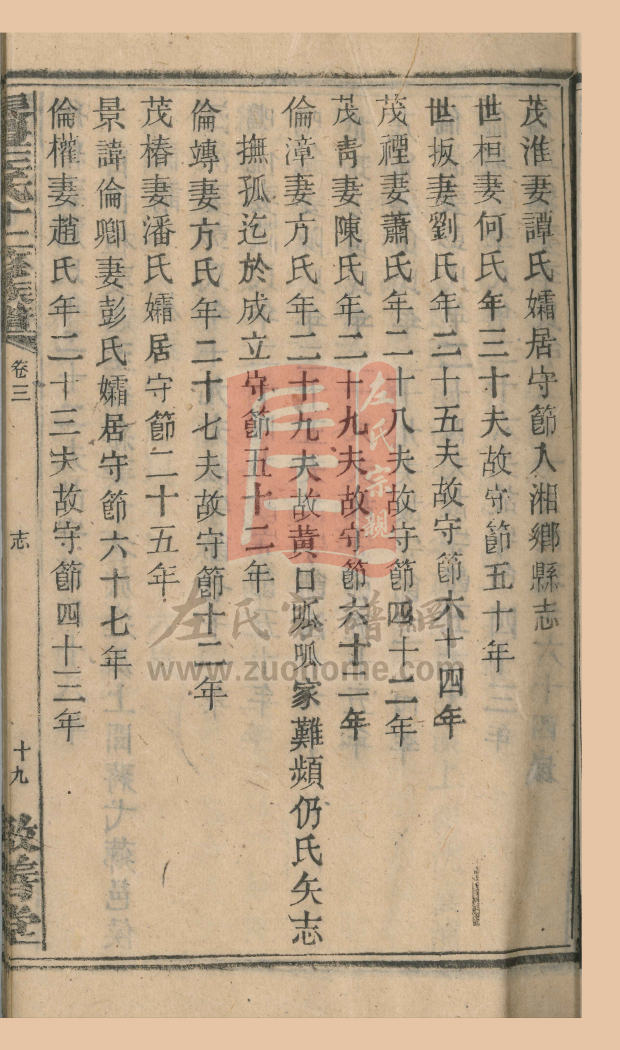 茂淮妻譚氏孀居守節入湘鄉縣志
世桓妻何氏年三十夫故守節五十年
世扳妻劉氏年二十五夫故守節六十四年
茂禋妻蕭氏年二十八夫故守節四十二年
茂靑妻陳氏年二十九夫故守節六十二年
倫漳妻方氏年二十九夫故黃口呱呱家難頻仍氏矢志
撫孤迄於成立守節五十二年
倫竱妻方氏年二十七夫故守節十二年
茂椿妻潘氏孀居守節二十五年
景諱倫卿妻彭氏孀居守節六十七年
倫權妻趙氏年二十三夫故守節四十三年
左氏十二修族譜
卷三
志
十九
敦善堂
左氏宗親
左氏家譜網
www.zuohome.com